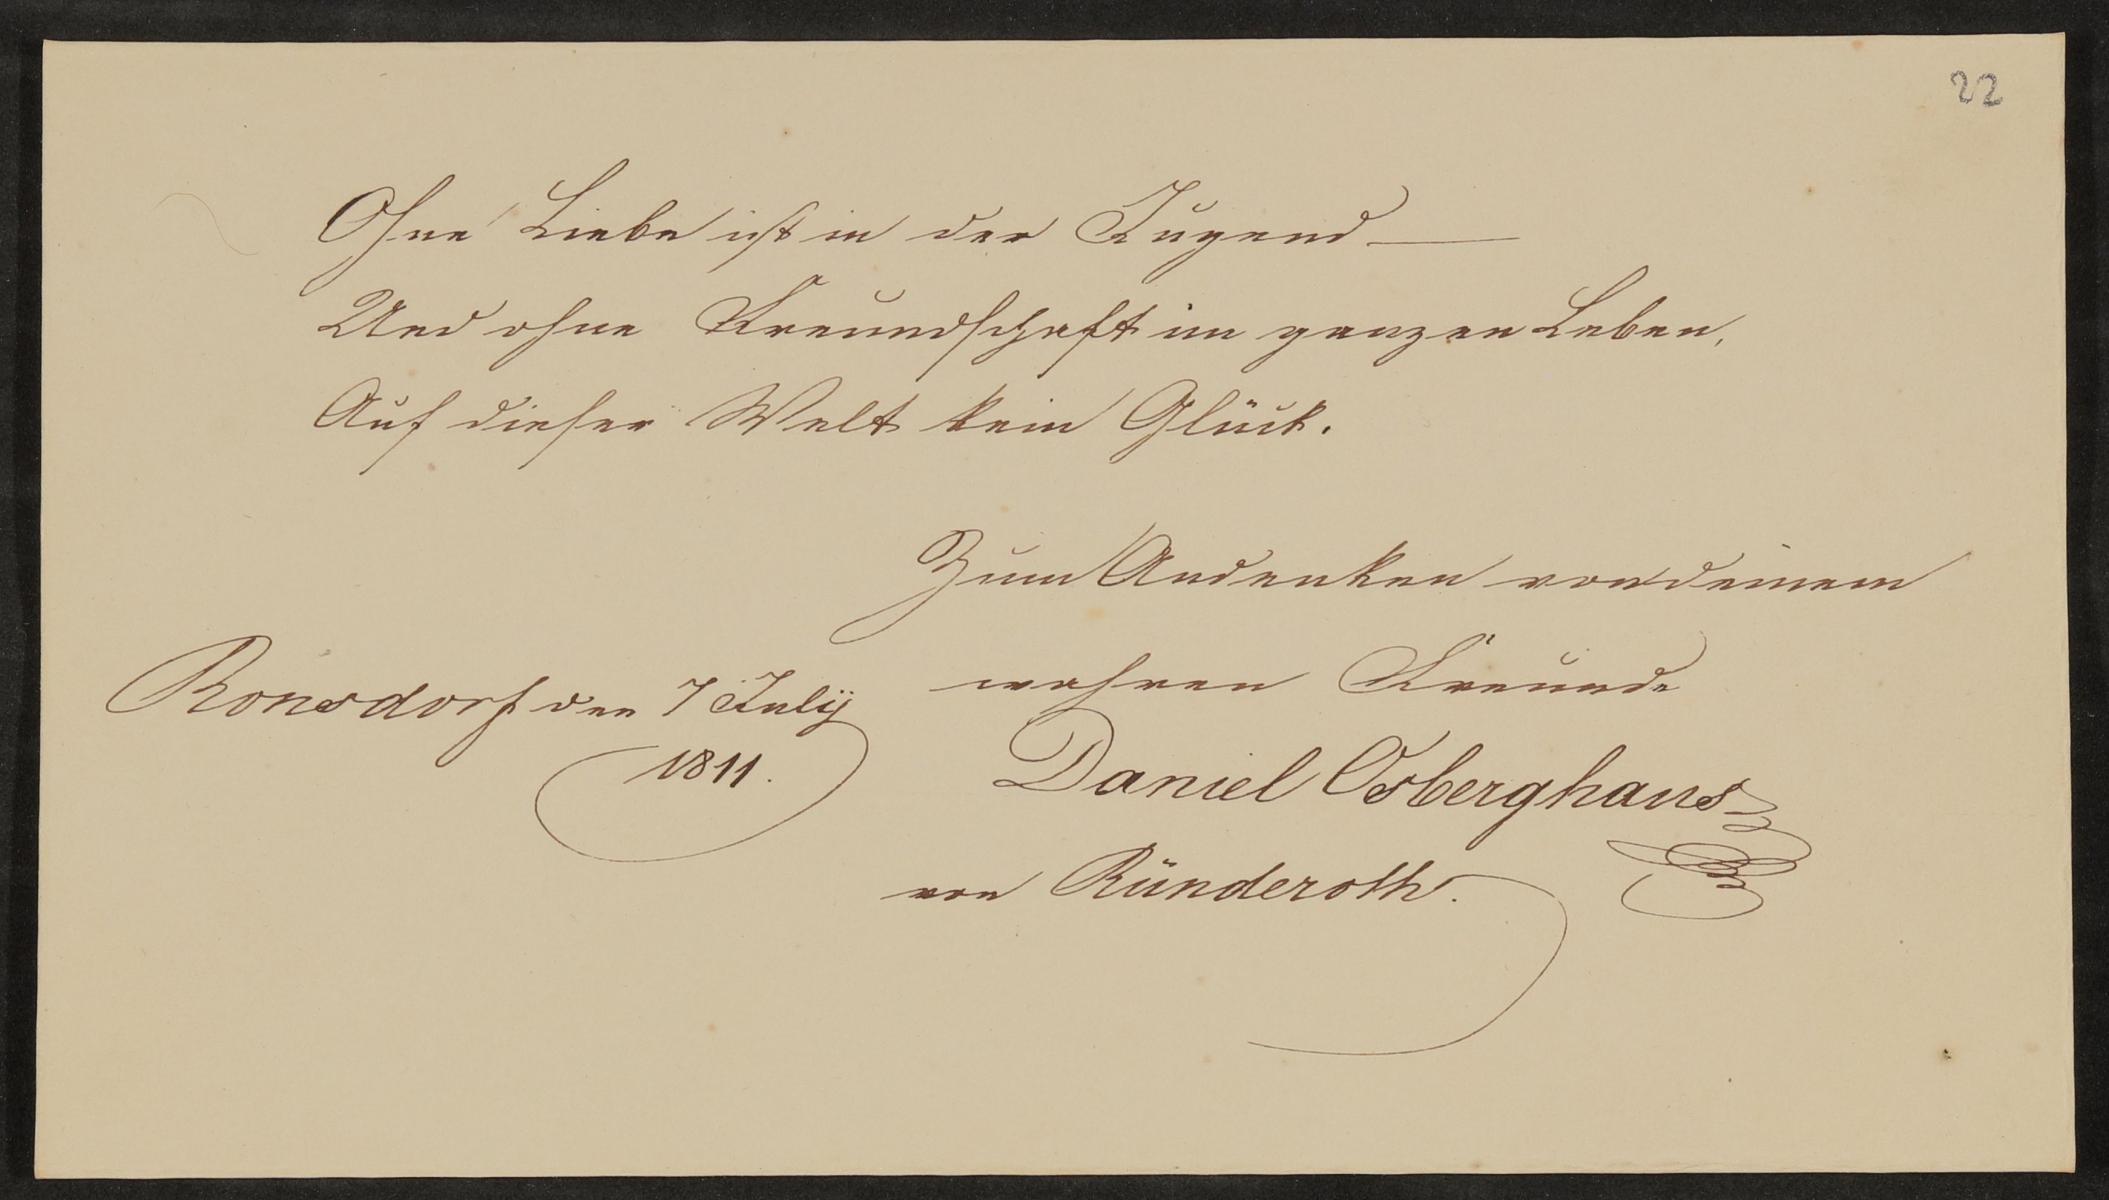 22
Ohne Liebe ist in der Jugend —
Und ohne Freundschaft im ganzen Leben,
Auf dieser Welt kein Glück.
Zum Andenken von deinem
wahren Freunde
Ronsdorf den 7 Julÿ
1811.
Daniel Osberghaus
von Ründeroth.